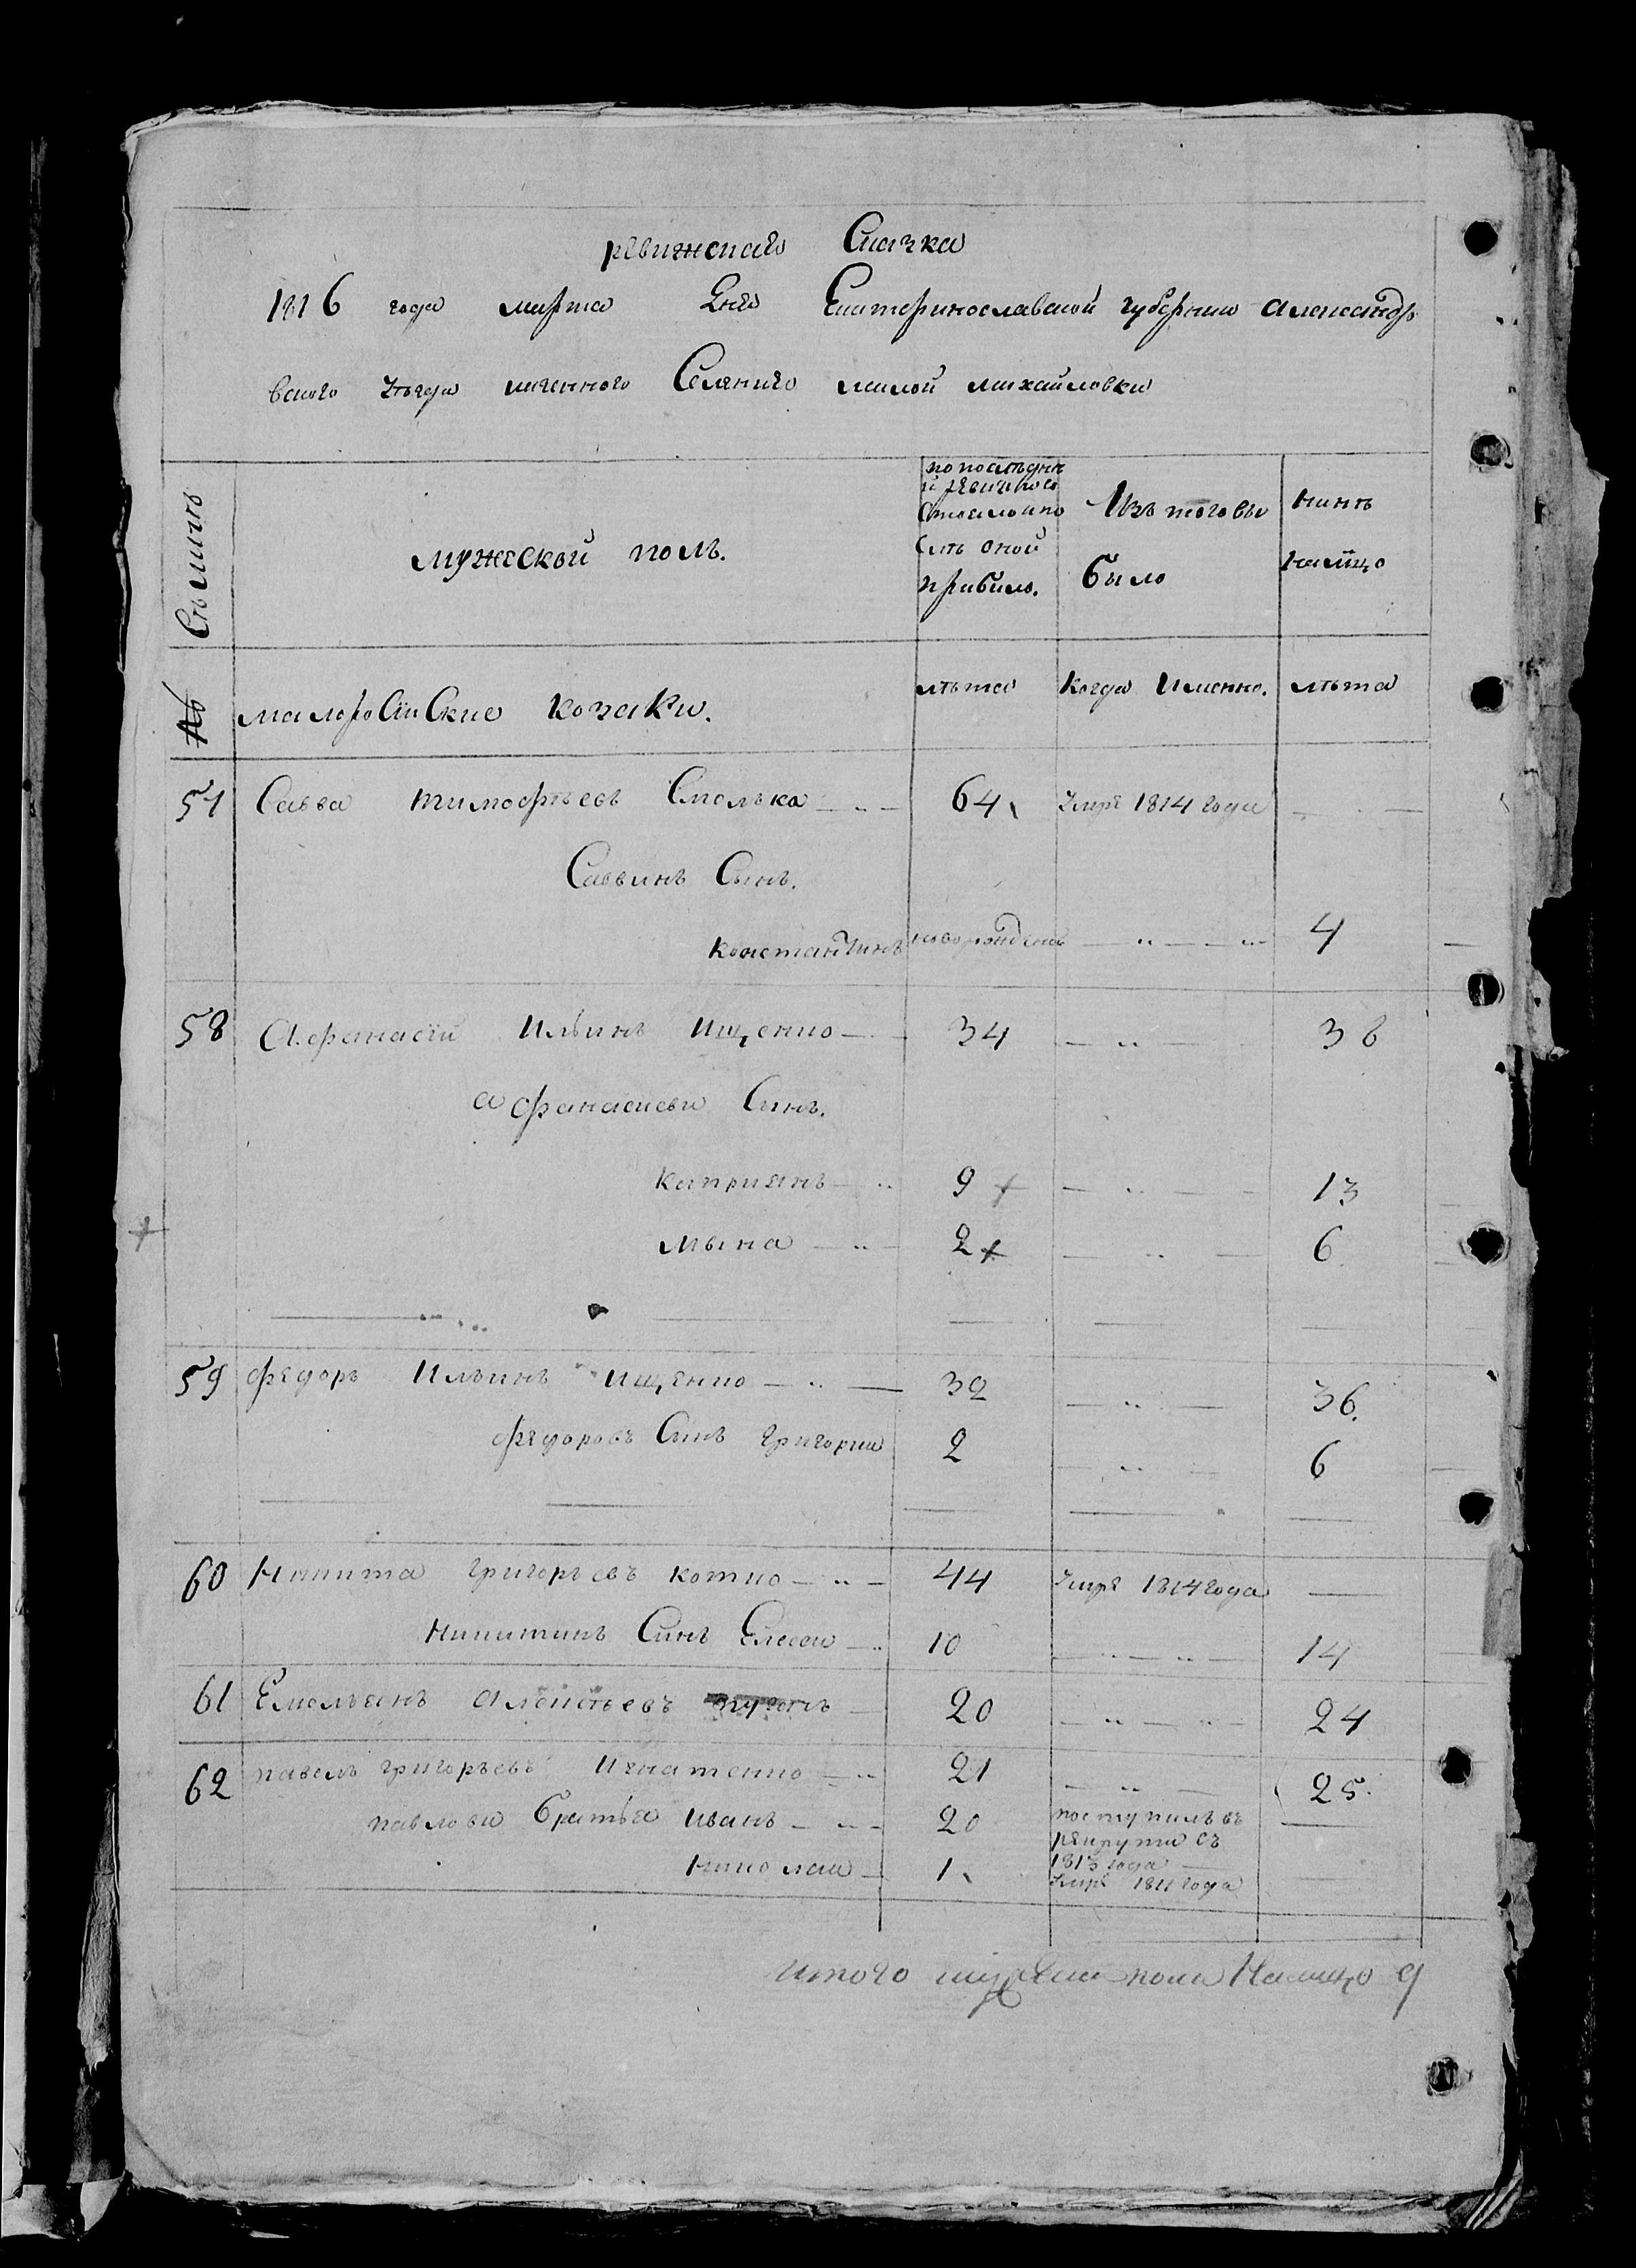 ревижская Сказка
1816 года марта дня Екатеринославской губернии александро
вского уезда казенного Селения малой михайловки
Семьи
мужеской полъ.
по последней ревизии состояло и после оной прибыло.
Изъ того вы
было
нинѣ
налицо
№
малоросийские козаки.
лѣта
когда именно.
лѣта
57 Савва тимофѣевъ Смолька 64 умре 1814 года
Саввинъ Синъ.
константинъ новорожденъ 4
58 Афанасий Ильинъ Ищенко 34 38
афанасиеви Синъ.
киприянъ 9 13
мина 2 6
59 федоръ Ильинъ Ищенко 32 36.
федоровъ Синъ григории 2 6
60 Никита григорьевъ котко 44 умре 1814 года
никитинъ Синъ Елесеи 10 14
61 Емельянъ алексѣевъ 20 24
62 павелъ григорьевъ Игнатенко 21 25.
павлови братья иванъ 20 поступилъ въ
рекрути съ
1813 года
николаи 1 умре 1811 года
итого мужеска пола Налицо 9